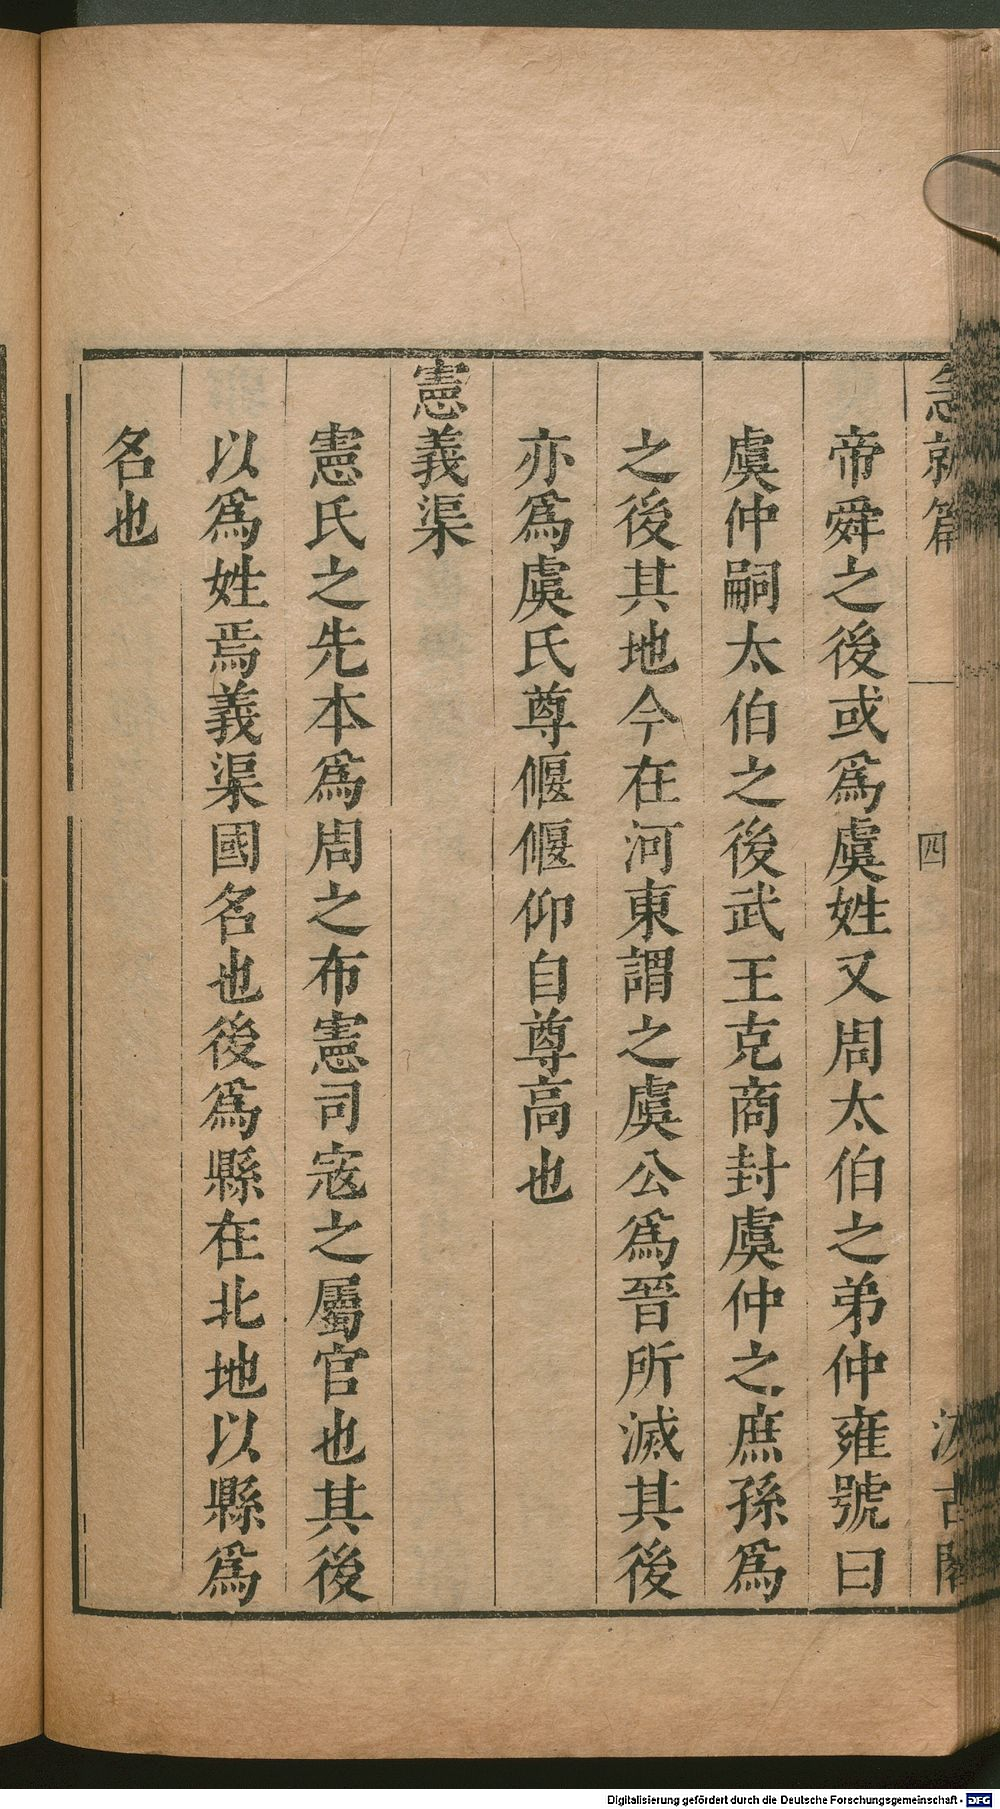 急就篇 四 汲古閣
帝舜之後或爲虞姓又周太伯之弟仲雍號曰
虞仲嗣太伯之後武王克商封虞仲之庶孫爲
之後其地今在河東謂之虞公爲晉所滅其後
亦爲虞氏尊偃偃仰自尊高也
憲義渠
憲氏之先本爲周之布憲司寇之屬官也其後
以爲姓焉義渠國名也後爲縣在北地以縣爲
名也
Digitalisierung gefördert durch die Deutsche Forschungsgemeinschaft - DFG